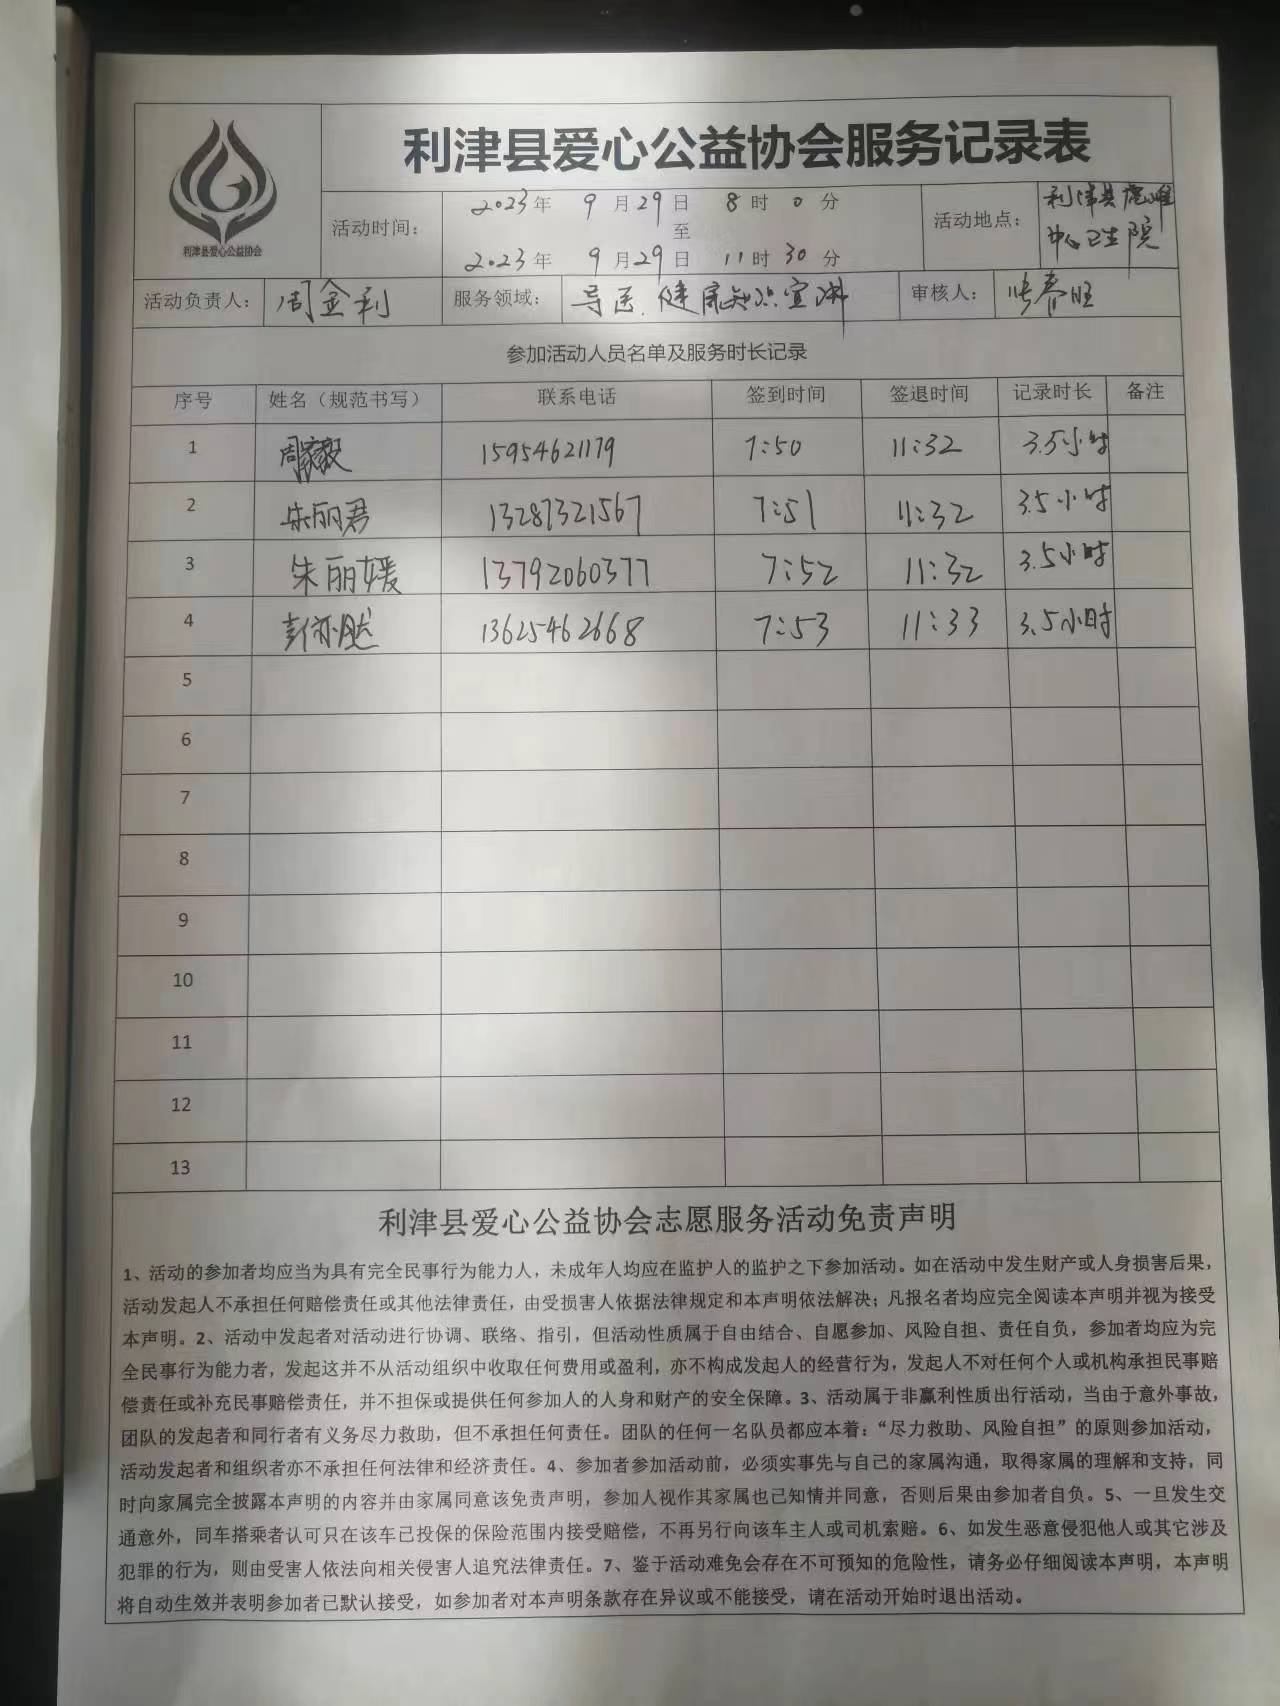 利津县爱心公益协会
利津县爱心公益协会服务记录表
活动时间：
2023年 9月29日 8时0分
至
2023年 9月29日 11时30分
活动地点：
利津县
中心卫生院
活动负责人： 周金利 服务领域： 导医、健康知识宣讲 审核人： 张春旺
参加活动人员名单及服务时长记录
序号 姓名（规范书写） 联系电话 签到时间 签退时间 记录时长 备注
1 周家毅 15954621179 7:50 11:32 3.5小时
2 朱丽君 13287321567 7:51 11:32 3.5小时
3 朱丽媛 13792060377 7:52 11:32 3.5小时
4 彭亦然 13625462668 7:53 11:33 3.5小时
5
6
7
8
9
10
11
12
13
利津县爱心公益协会志愿服务活动免责声明
1、活动的参加者均应当为具有完全民事行为能力人，未成年人均应在监护人的监护之下参加活动。如在活动中发生财产或人身损害后果，
活动发起人不承担任何赔偿责任或其他法律责任，由受损害人依据法律规定和本声明依法解决；凡报名者均应完全阅读本声明并视为接受
本声明。2、活动中发起者对活动进行协调、联络、指引，但活动性质属于自由结合、自愿参加、风险自担、责任自负，参加者均应为完
全民事行为能力者，发起这并不从活动组织中收取任何费用或盈利，亦不构成发起人的经营行为，发起人不对任何个人或机构承担民事赔
偿责任或补充民事赔偿责任，并不担保或提供任何参加人的人身和财产的安全保障。3、活动属于非赢利性质出行活动，当由于意外事故，
团队的发起者和同行者有义务尽力救助，但不承担任何责任。团队的任何一名队员都应本着：“尽力救助、风险自担”的原则参加活动，
活动发起者和组织者亦不承担任何法律和经济责任。4、参加者参加活动前，必须实事先与自己的家属沟通，取得家属的理解和支持，同
时向家属完全披露本声明的内容并由家属同意该免责声明，参加人视作其家属也已知情并同意，否则后果由参加者自负。5、一旦发生交
通意外，同车搭乘者认可只在该车已投保的保险范围内接受赔偿，不再另行向该车主人或司机索赔。6、如发生恶意侵犯他人或其它涉及
犯罪的行为，则由受害人依法向相关侵害人追究法律责任。7、鉴于活动难免会存在不可预知的危险性，请务必仔细阅读本声明，本声明
将自动生效并表明参加者已默认接受，如参加者对本声明条款存在异议或不能接受，请在活动开始时退出活动。